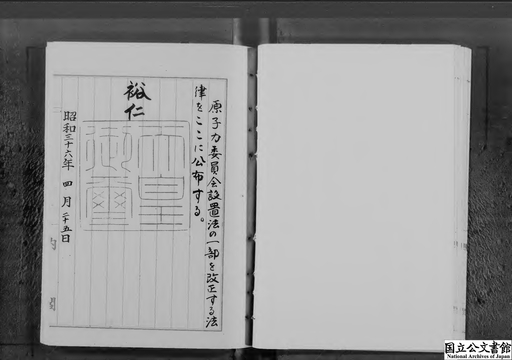 原子力委員会設置法の一部を改正する法
律をここに公布する。
裕仁
天皇
御璽
昭和三十六年 四月二十五日
国立公文書館
National Archives of Japan